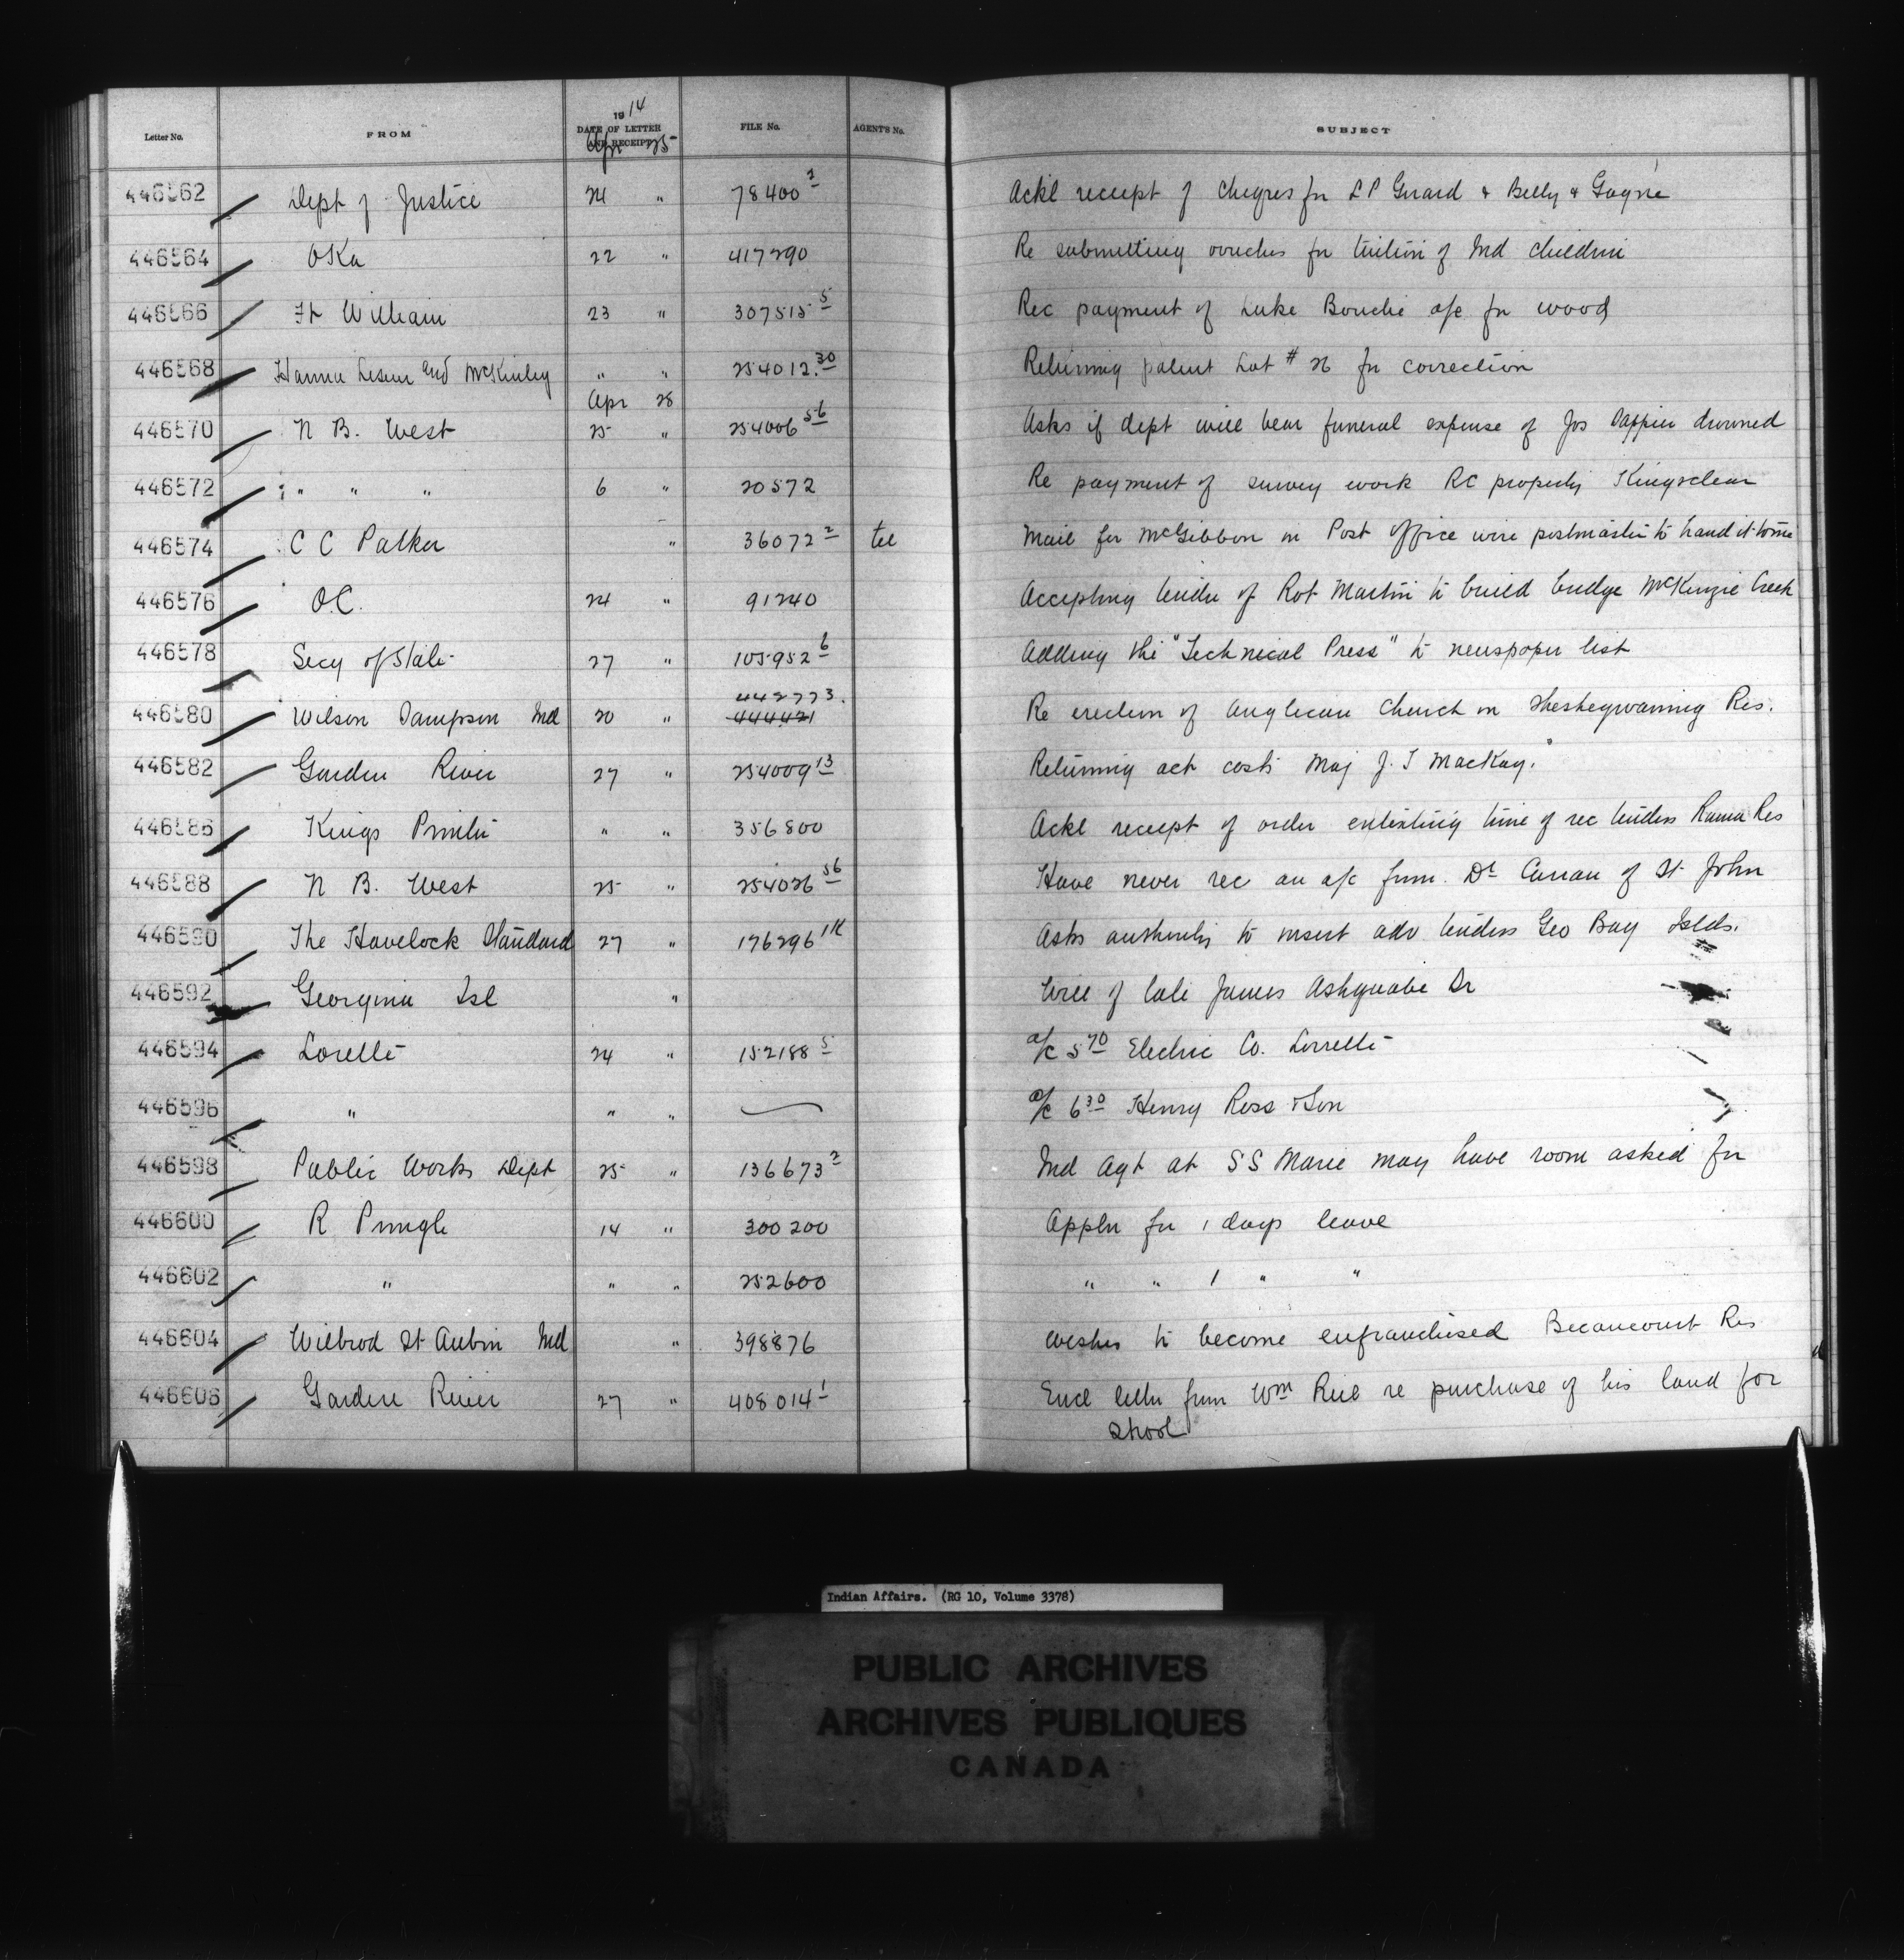 Letter No. FROM 1914 DATE OF LETTER AND RECEIPT FILE No. AGENT'S No. SUBJECT
Apr 25
446562 Dept of Justice 24 " 78400 2 Ackl receipt of cheques for L P Girard & Belly & Gagne
446564 Oka 22 " 417290 Re submitting vouches for tuition of Ind children
446566 Ft William 23 " 307515 5 Rec payment of Luke Bouchie a/c for wood
446568 Hanna Lesuer and McKinley " " 254012.30 Returning patent Lot # 26 for correction
Apr 28
446570 N B. West 25 " 254006 56 Asks if dept will bear funeral expense of Jos drowned
446572 " " " 6 " 20572 Re payment of survey work RC property Kingsclear
446574 C C Parker " 36072 2 tel Mail for McGibbon in Post office wire postmaster to hand it to me
446576 O.C. 24 " 91240 Accepting tender of Rot Martin to build bridge McKenzie Creek
446578 Secy of State 27 " 105952 6 Adding the "Technical Press" to newspaper list
442773.
446580 Wilson Sampson Ind 20 " 444421 Re erection of Anglican Church on Sheshegwaning Res.
446582 Garden River 27 " 254009 13 Returning act costs Maj J. T MacKay.
446586 Kings Printer " " 356800 Ackl receipt of order extending time of rec tenders Rama Res
446588 N B. West 25 " 254026 56 Have never rec an a/c from. Dr Curran of St. John
446590 The Havelock Standard 27 " 176296 1K Asks authority to insert adv tenders Geo Bay Islds.
446592 Georgina Isl " Will of late James Ashquabe Sr
446594 Lorette 24 " 152188 5 a/c 5 70 Electric Co. Lorrette
446596 " " " a/c 6 30 Henry Ross & Son
446598 Public Works Dept 25 " 136673 2 Ind Agt at S S Marie may have room asked for
446600 R Pringle 14 " 300200 Appln for 1 days leave
446602 " " " 252600 " " 1 " "
446604 Wilbrod St Aubin Ind " 398876 wishes to become enfranchised Becancourt Res
446606 Garden River 27 " 408014 1 Encl letter from Wm Riel re purchase of his land for
School
Indian Affairs. (RG 10, Volume 3378)
PUBLIC ARCHIVES
ARCHIVES PUBLIQUES
CANADA